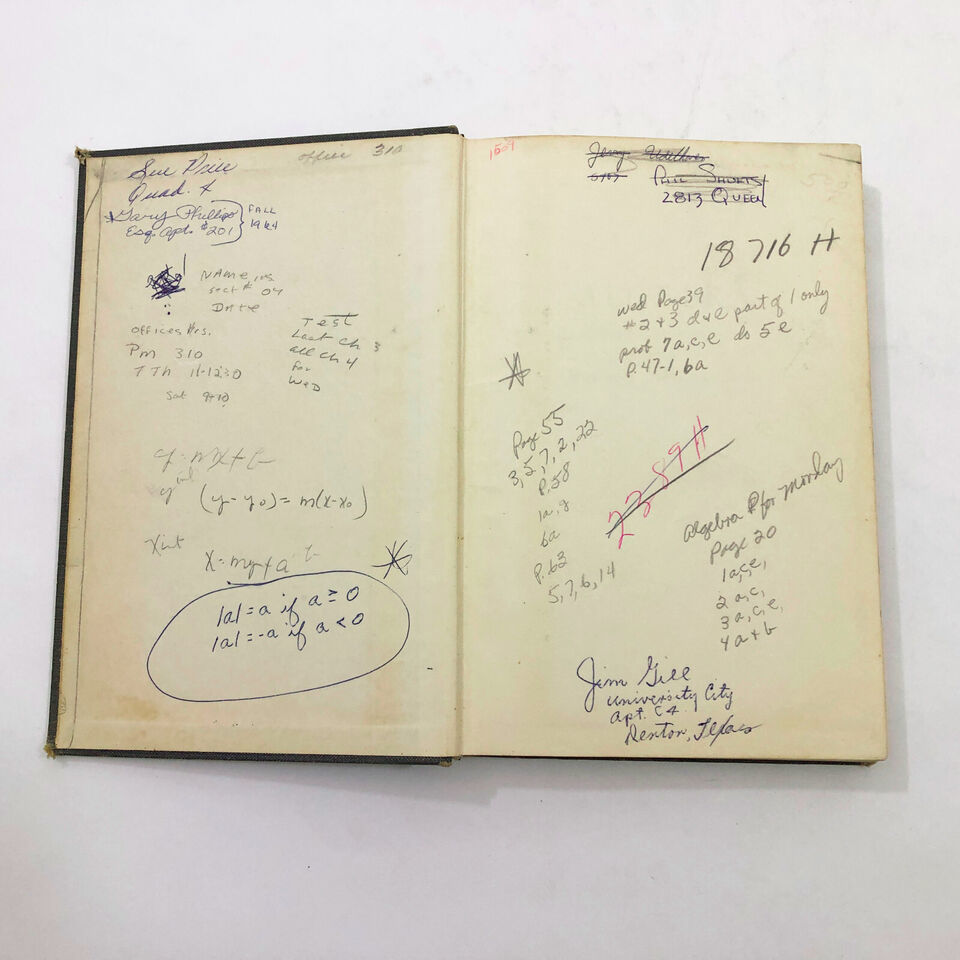 Sue Price
Office 310
Quad. 4
*Gary Phillips } FALL
Esq. Apt. #201 } 1964
NAME, INS
sect # 04
Date
Offices Hrs.
Pm 310
T Th 11-1230
Sat 9-10
Test
Last ch 3
all ch 4
for
WED
y = mx + b
y int
(y - y₀) = m(x-x₀)
X int
|a| = a if a ≥ 0
|a| = -a if a < 0
1509
Jerry
Phil Shorts
2813 Queen
18716 H
wed Page 39
#2 + 3 d+e part of 1 only
prob 7a,c,e do 5e
P.47-1, 6a
Page 55
3, 5, 7, 2, 22
P.58
1a, g
6a
P.62
5, 7, 6, 14
2289H
Algebra P for Monday
Page 20
1a,c,e,
2 a,c,
3 a,c,e,
4 a + b
Jim Gill
University City
Apt. C4
Denton, Texas